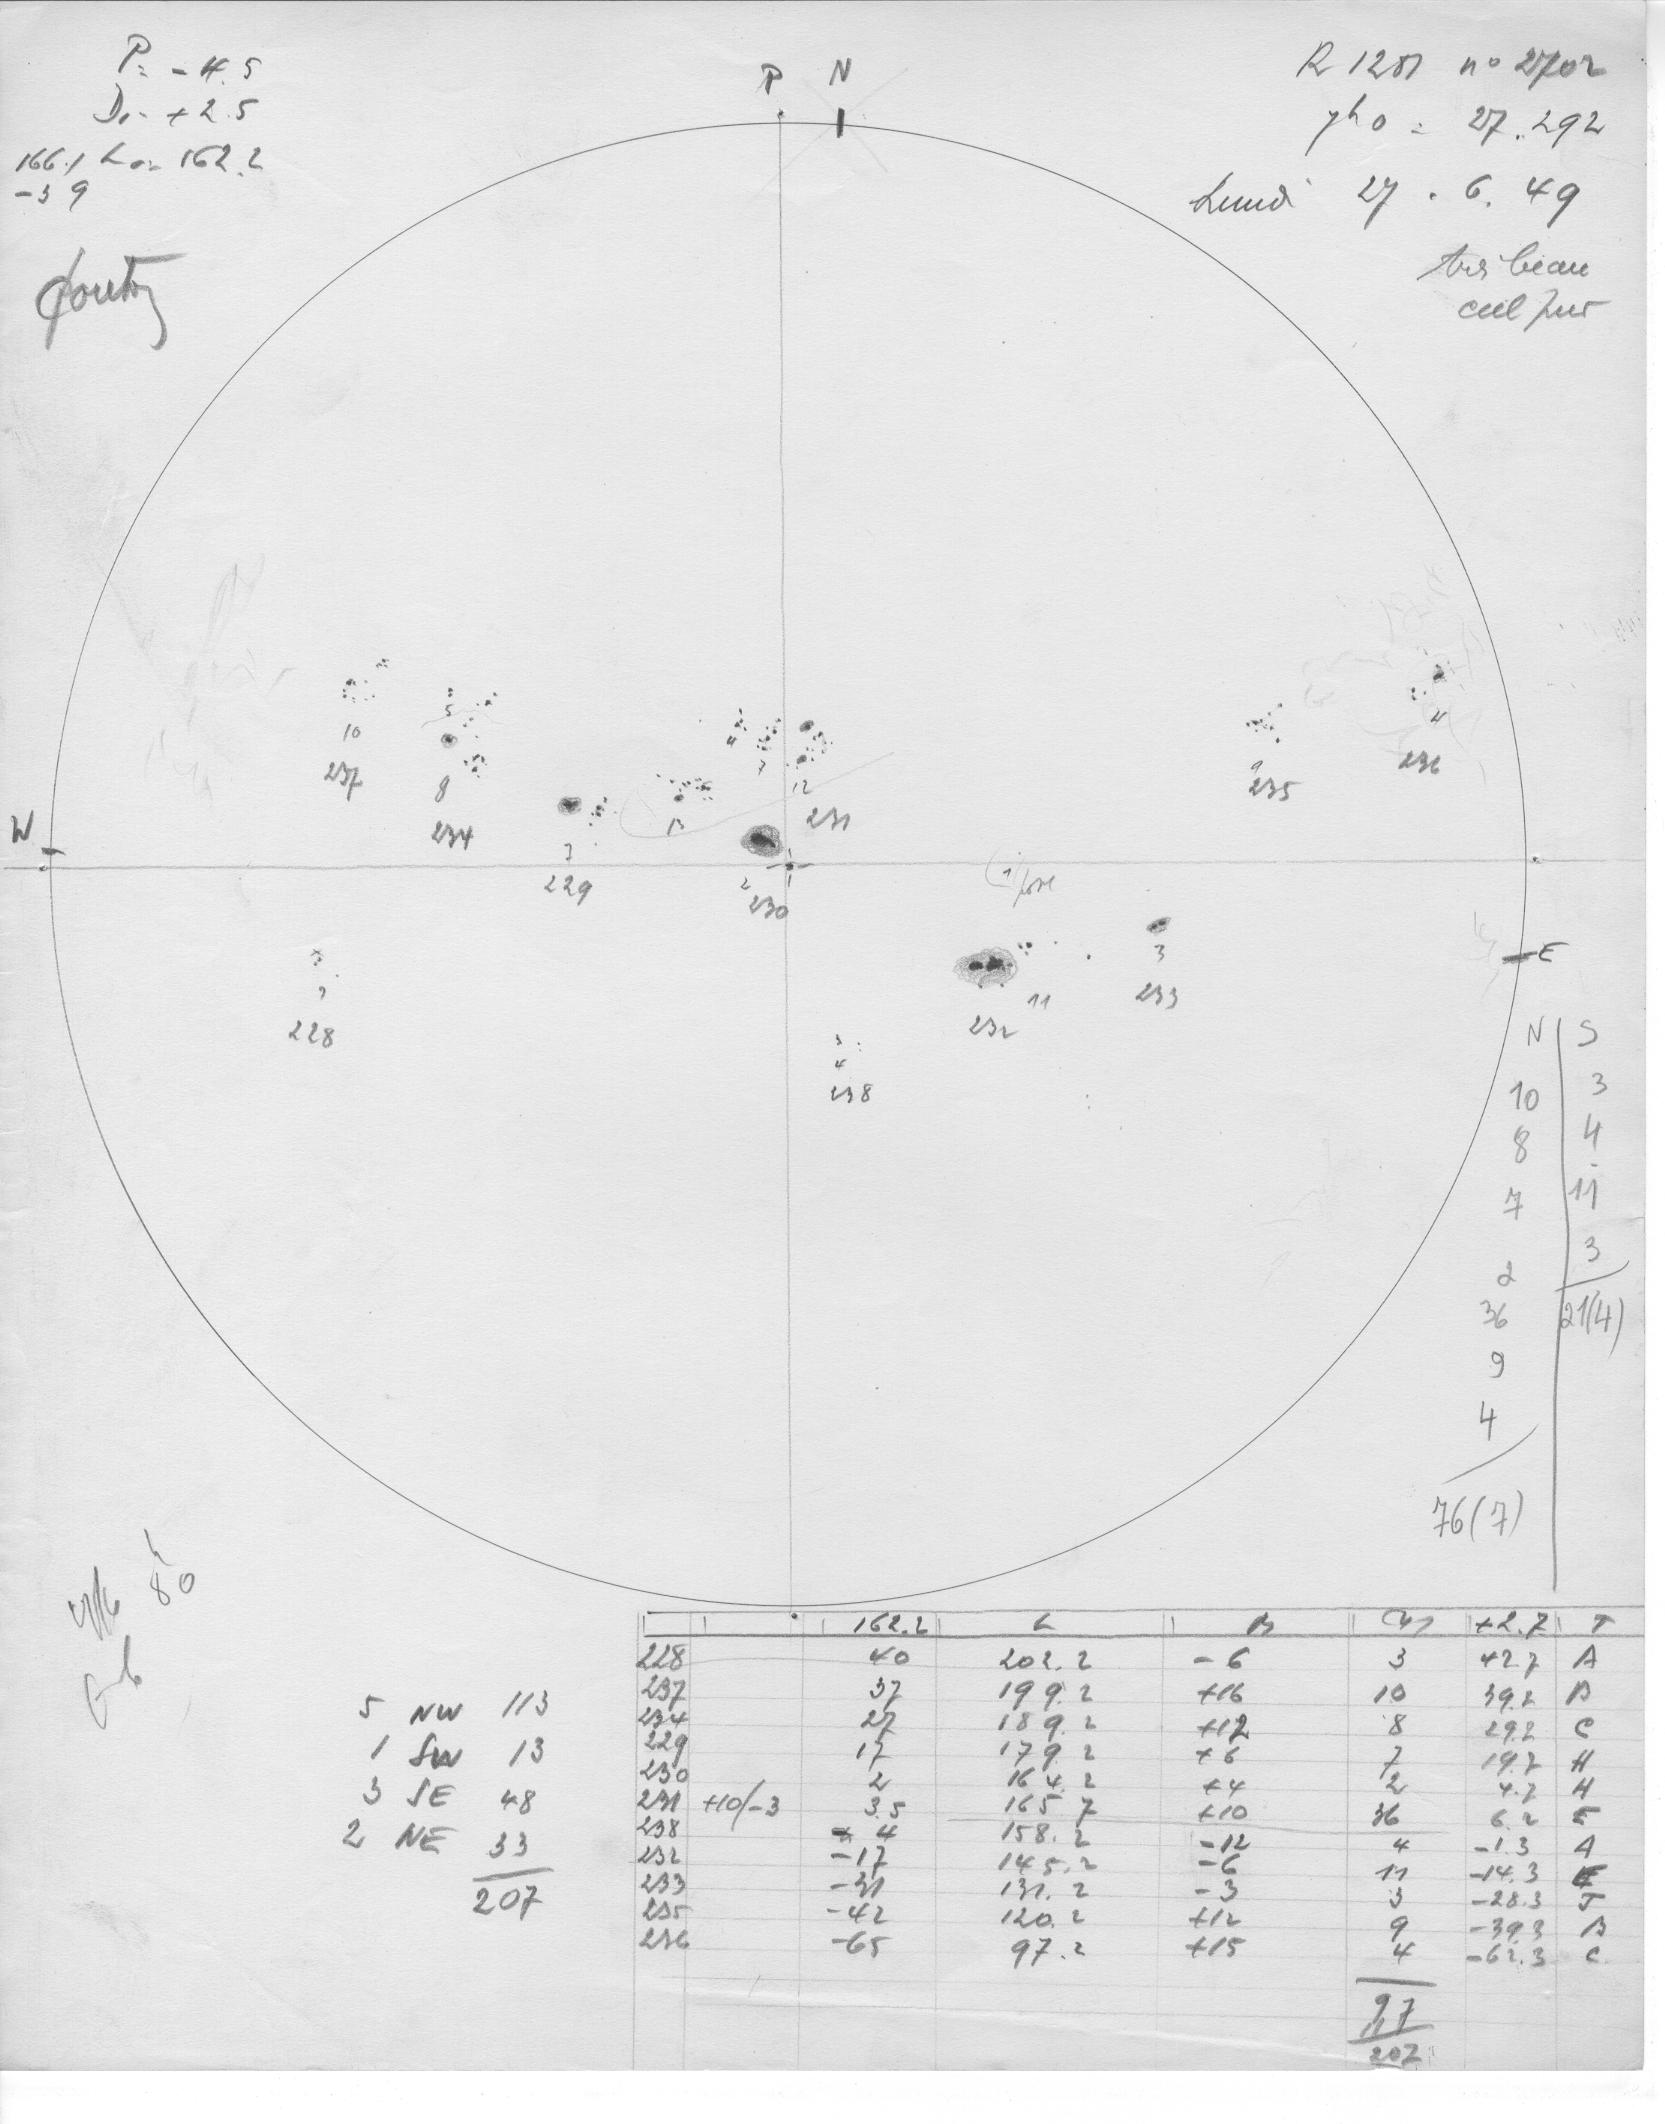 P = -4.5
D. = +2.5
166.1 Lo = 162.2
-3 9
P N
R 1251 no 2702
7h0 = 27.292
Lundi 27 . 6. 49
très beau
ciel pur
5
10
237
8
234
7
229
13
4
7
12
231
2
230
9
235
4
236
W
E
228
11
232
3
233
4
238
N S
10 3
8 4
7 11
2 3
36 21(4)
9
4
76(7)
5 NW 113
1 SW 13
3 SE 48
2 NE 33
207
162.2 L B +2.7 T
228 40 202.2 -6 3 42.7 A
237 37 199.2 +16 10 39.2 B
234 27 189.2 +12 8 29.2 C
229 17 179.2 +6 7 19.7 H
230 2 164.2 +4 2 4.7 H
231 +10/-3 3.5 165.7 +10 36 6.2 E
238 - 4 158.2 -12 4 -1.3 A
232 -17 145.2 -6 11 -14.3 E
233 -31 131.2 -3 3 -28.3 J
235 -42 120.2 +12 9 -39.3 B
236 -65 97.2 +15 4 -62.3 C
97
11
207